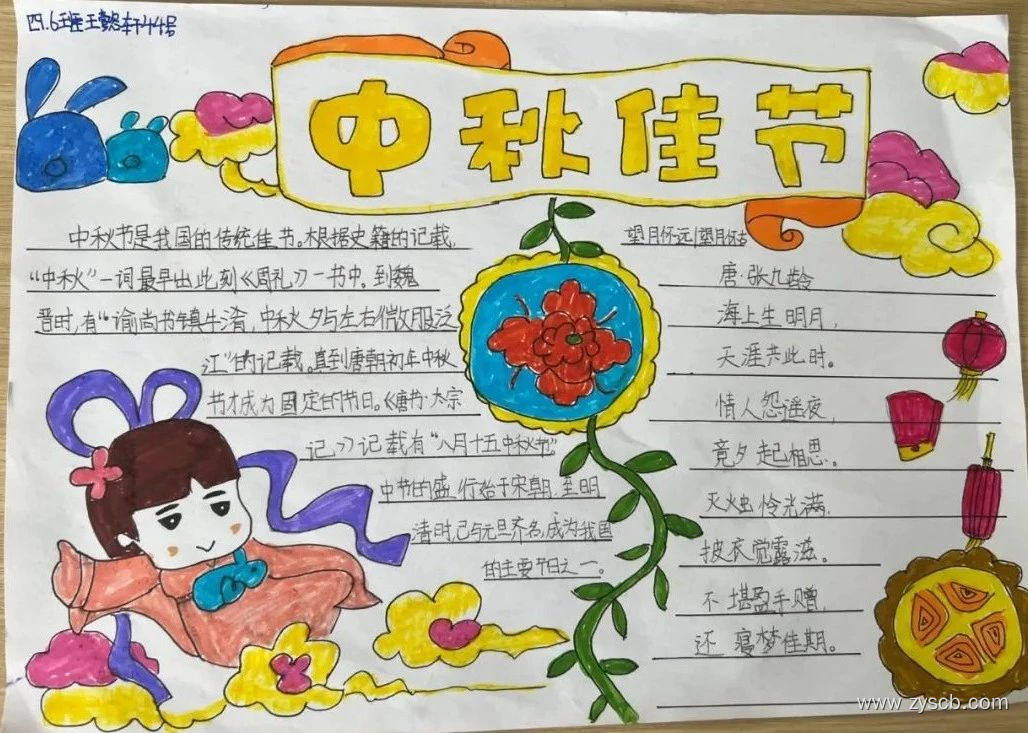 四.6班王懿轩44号
中秋佳节
中秋节是我国的传统佳节。根据史籍的记载，
“中秋”一词最早出此刻《周礼》一书中。到魏
晋时，有“谕尚书镇牛渚，中秋夕与左右微服泛
江”的记载。直到唐朝初年中秋
节才成为固定的节日。《唐书·太宗
记》记载有“八月十五中秋节”。
中节的盛行始于宋朝，至明
清时，已与元旦齐名，成为我国
的主要节日之一。
望月怀远/望月怀古
唐·张九龄
海上生明月，
天涯共此时。
情人怨遥夜，
竟夕起相思。
灭烛怜光满，
披衣觉露滋。
不堪盈手赠，
还寝梦佳期。
www.zyscb.com